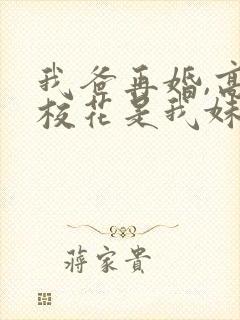 我爸再婚,高
校花是我妹
蒋家貴